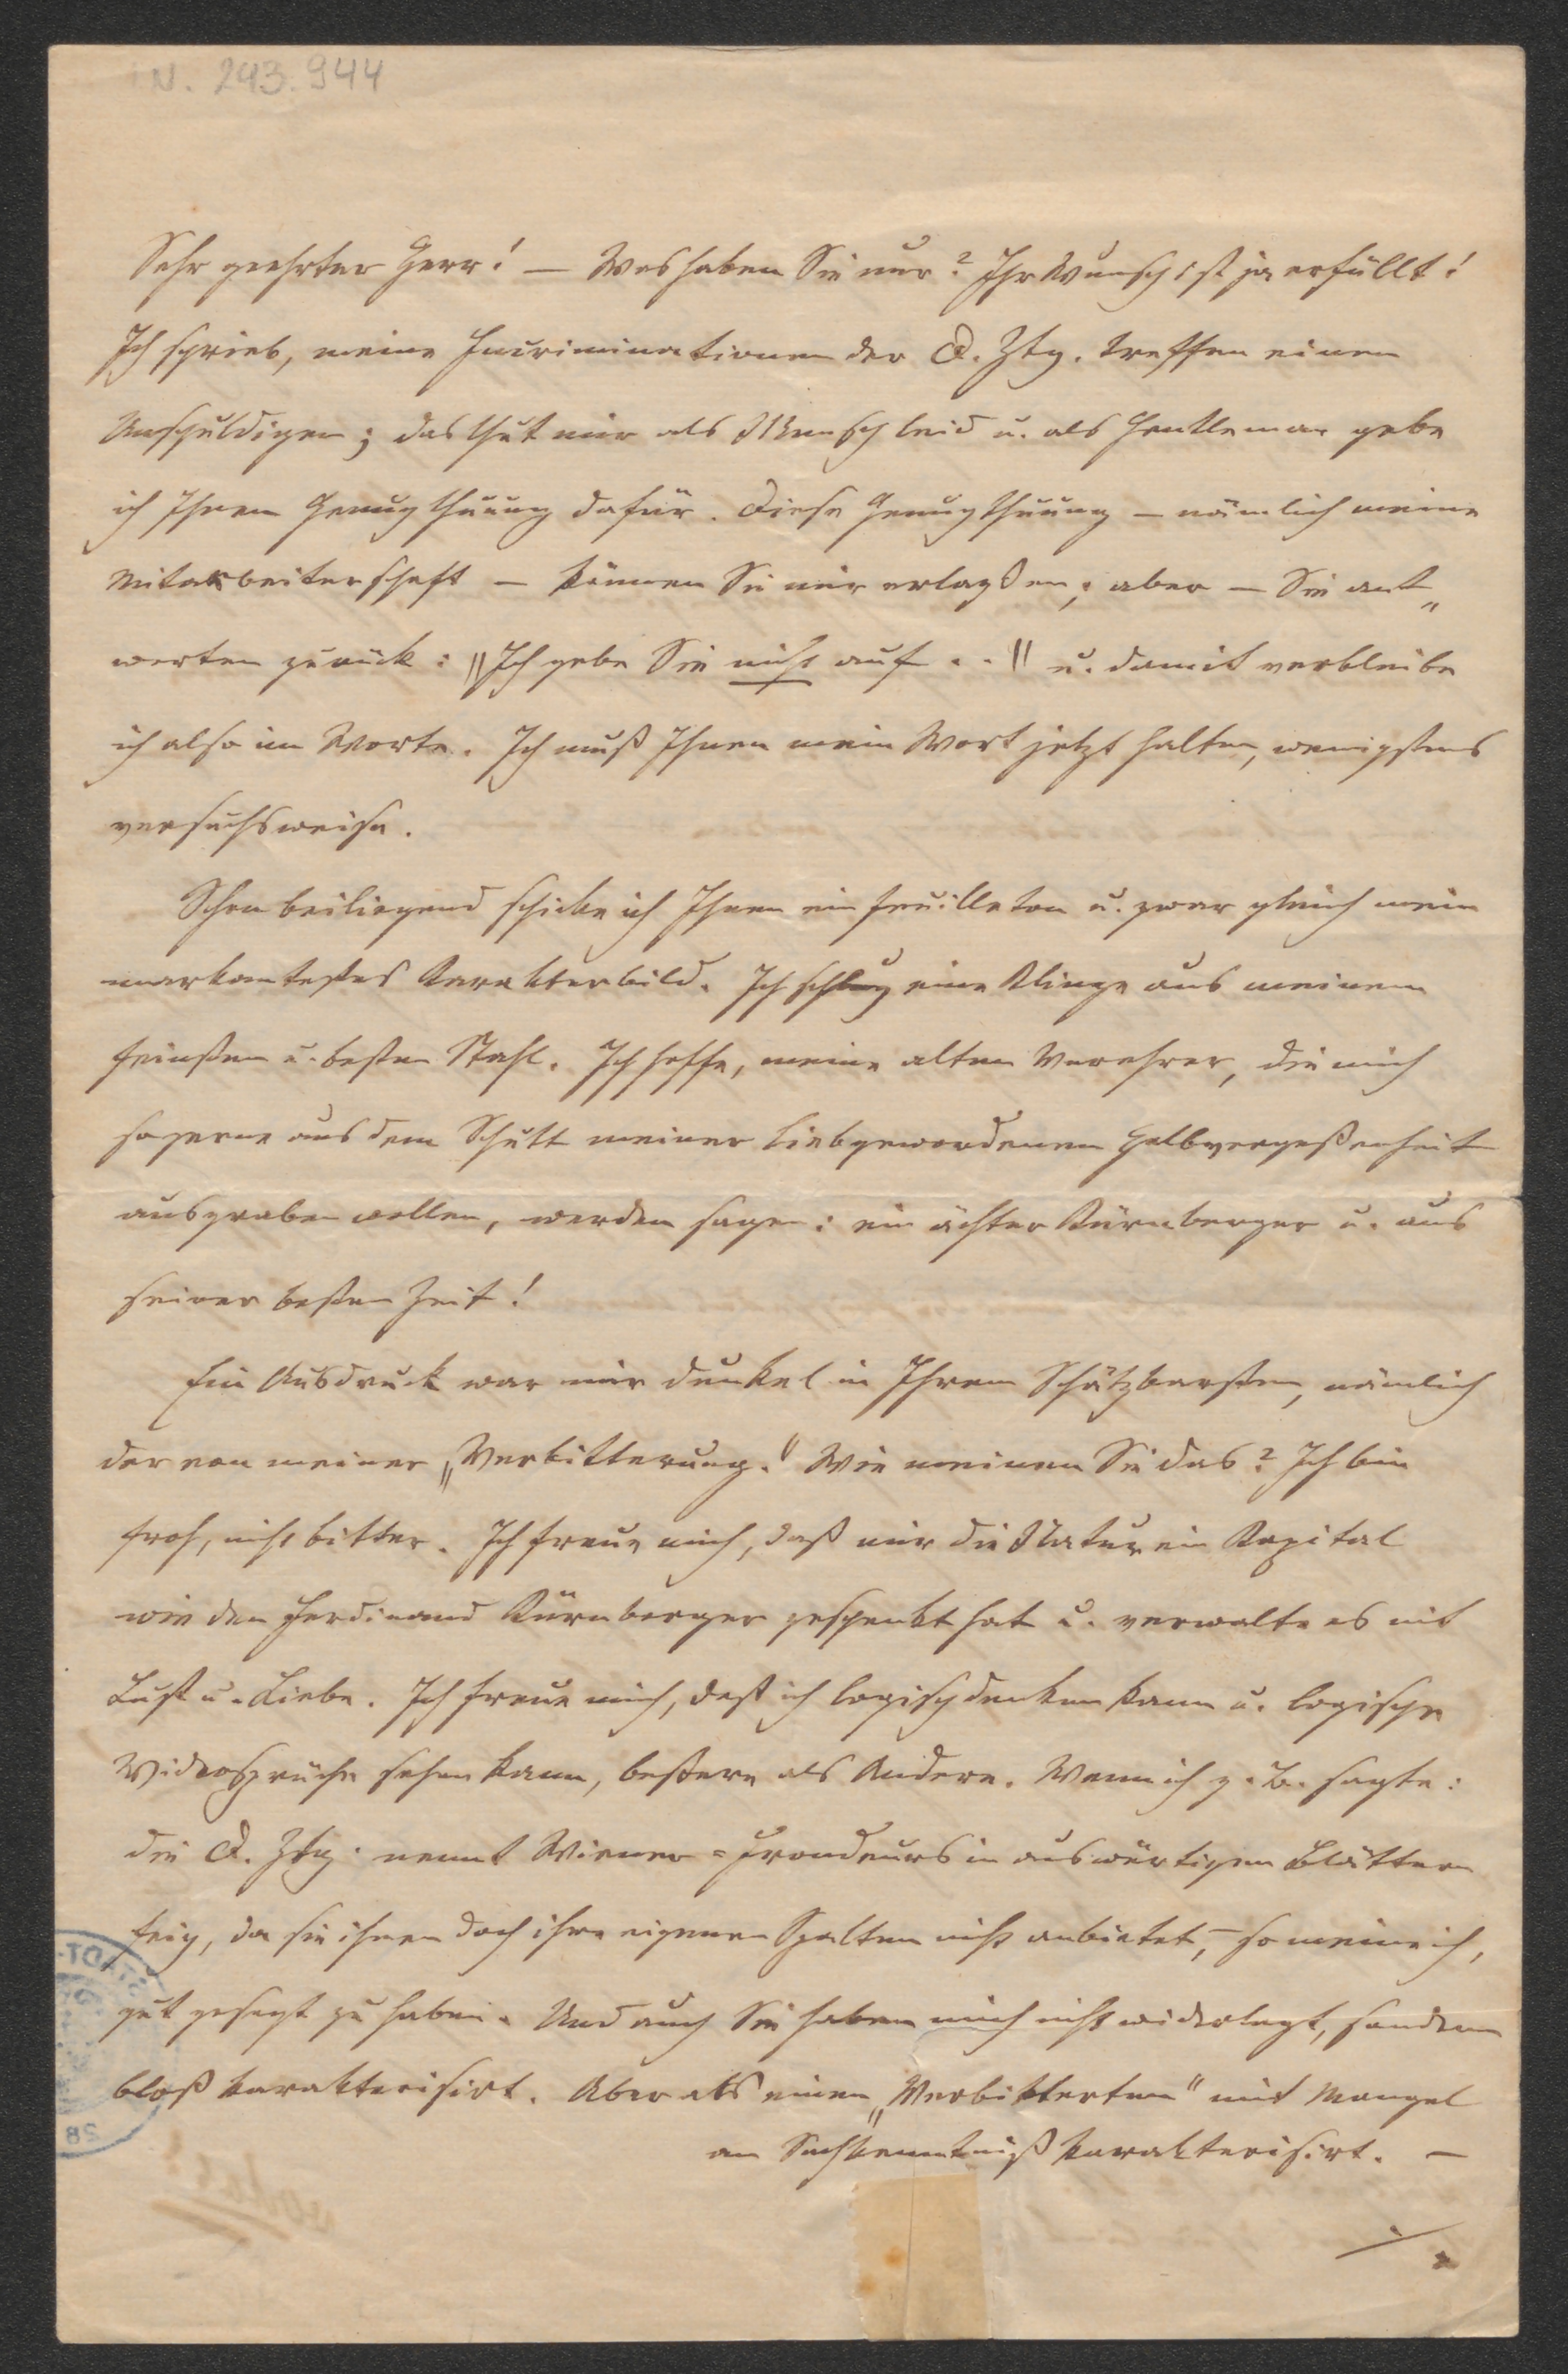 N. 243.944
Sehr geehrter Herr! — Was haben Sie nur? Ihr Wunsch ist ja erfüllt!
Ich schrieb, meine Incriminationen der D. Ztg. treffen einen
Unschuldigen; das thut mir als Mensch leid u. als Gentleman gebe
ich Ihnen Genugthuung dafür. Diese Genugthuung — nämlich meine
Mitarbeiterschaft — können Sie mir erlaßen; aber — Sie ant„
worten zurück: „Ich gebe Sie nicht auf . ." u. damit verbleibe
ich also im Worte. Ich muß Ihnen mein Wort jetzt halten, wenigstens
versuchsweise.
Schon beiliegend schicke ich Ihnen ein Feuilleton u. zwar gleich mein
markantestes Karakterbild. Ich schlug eine Klinge aus meinem
feinsten u. besten Stahl. Ich hoffe, meine alten Verehrer, die mich
so gerne aus dem Schutt meiner liebgewordenen Halbvergeßenheit
ausgraben wollen, werden sagen: ein ächter Kürnberger u. aus
seiner besten Zeit!
Ein Ausdruck war mir dunkel in Ihrem Schätzbarsten, nämlich
der von meiner „Verbitterung." Wie meinen Sie das? Ich bin
froh, nicht bitter. Ich freue mich, daß mir die Natur ein Kapital
wie den Ferdinand Kürnberger geschenkt hat u. verwalte es mit
Lust u. Liebe. Ich freue mich, daß ich logisch denken kann u. logische
Widersprüche sehen kann, beßere als Andere. Wenn ich z. B. sagte:
die D. Ztg. nennt Wiener=Frondeurs in auswärtigen Blättern
feig, da sie ihnen doch ihre eigenen Spalten nicht anbietet, — so meine ich,
gut gesagt zu haben. Und auch Sie haben mich nicht widerlegt, sondern
bloß karakterisirt. Aber als einen „Verbitterten" mit Mangel
an Sachkenntniß karakterisirt. —